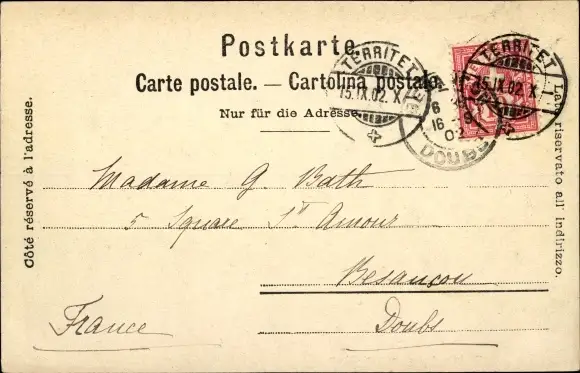 Postkarte.
Carte postale. — Cartolina postale.
Nur für die Adresse.
Côté réservé à l'adresse.
Lato riservato all' indirizzo.
TERRITET
15.IX.02. X
TERRITET
15.IX.02. X
16
02
DOUBS
Madame G. Bath
5 Square St Amour
Besançon
France
Doubs